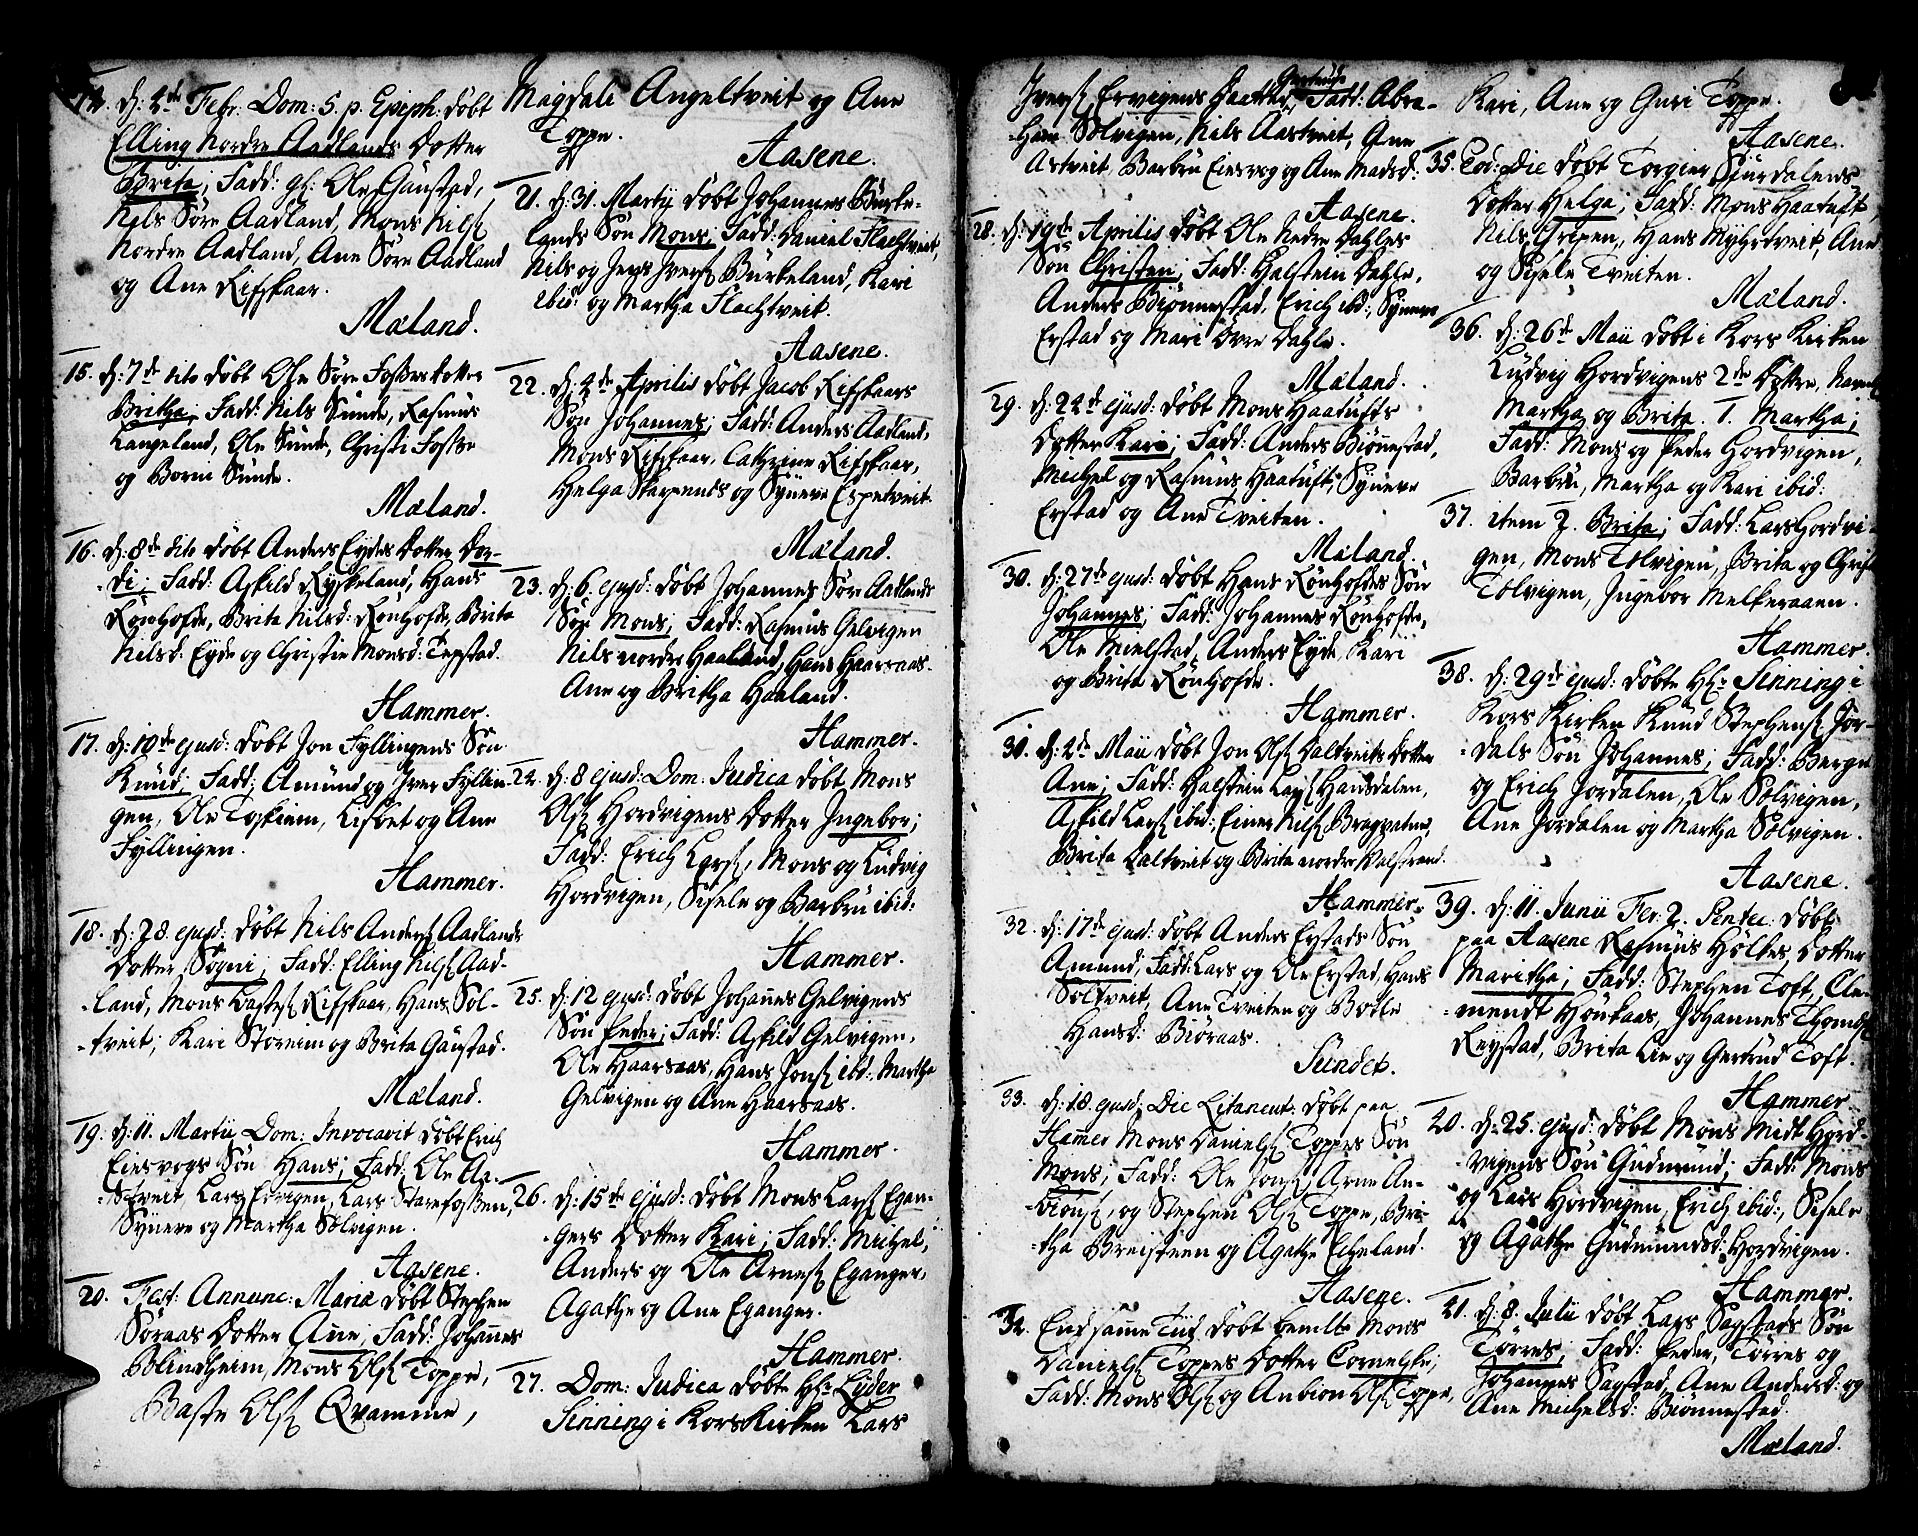 14. d: 4de Febr. Dom: 5. p. Epiph: døbt
Elling Nordre Aadlands Dotter
Brita; Fadd: gl: Ole Gaustad,
Nils Søre Aadland, Mons Nils:
Nordre Aadland, Ane Søre Aadland
og Ane Risskaar.
Mæland.
15. d: 7de dito døbt Ole Søre Fosses dotter
Britha; Fadd: Nils Sunde, Rasmus
Langeland, Ole Sunde, Christi Fosse
og Borni Sunde.
Mæland.
16. d: 8de dito døbt Anders Eydes Dotter Dor-
di; Fadd: Askild Ryskeland, Hans
Rønhofde, Brita Nilsd: Rønhofde, Brita
Nilsd: Eyde og Christie Monsd: Tepstad.
Hammer.
17. d: 10de ejusd: døbt Jon Fyllingens Søn
Knud; Fadd: Amund og Iver Fyllin-
gen, Ole Toskiem, Lisbet og Ane
Fyllingen.
Hammer.
18. d: 28. ejusd: døbt Nils Anders: Aadlands
Dotter Sogni; Fadd: Elling Nils: Aad-
land, Mons Lastes: Risskaar, Hans Sol-
tveit, Kari Storeim og Brita Gaustad.
Mæland.
19. d: 11. Martii Dom: Invocavit døbt Erich
Einesvogs Søn Hans; Fadd: Ole Aa-
stveit, Lars Ervigen, Lars Starefossen,
Synneve og Martha Sølvigen.
Aasene.
20. Fest: Annunc: Mariæ døbt Stephen
Søraas Dotter Ane; Fadd: Johannes
Blindheim, Mons Ols: Toppe,
Baste Ols: Qvamme,
Magdali Angeltveit og Ane
Toppe.
Aasene.
21. d: 31. Martii døbt Johannes Burke-
lands Søn Mons; Fadd: Daniel Flachtveit,
Nils og Jens Ivers: Burkeland, Kari
ibid: og Martha Flachtveit.
Aasene.
22. d: 4de Aprilis døbt Jacob Risskaars
Søn Johannes; Fadd: Anders Aadland,
Mons Risskaar, Cathrine Risskaar,
Helga Skarpenes og Syneve Espetveit.
Mæland.
23. d: 6. ejusd: døbt Johannes Søre Aadlands
Søn Mons; Fadd: Rasmus Gelvigen
Nils nordre Haaland, Hans Haarsaas.
Ane og Britha Haaland.
Hammer.
24. d: 8 ejusd: Dom: Judica døbt Mons
Ols: Hordvigens Dotter Ingebor;
Fadd: Erich Lars:, Mons og Ludvig
Hordvigen, Sisele og Barbru ibid:
Hammer.
25. d: 12 ejusd: døbt Johannes Gelvigens
Søn Peder; Fadd: Askild Gelvigen,
Ole Haarsaas, Hans Jons: ibid:, Martha
Gelvigen og Ane Haarsaas.
Hammer.
26. d: 15de ejusd: døbt Mons Lars: Egan-
gers Dotter Kari; Fadd: Michel,
Anders og Ole Arnes: Eganger,
Agathe og Ane Eganger.
Hammer.
27. Dom: Judica døbte Hr: Eyder
Sinning i Korskirken Lars
Ivers: Ervigens Daatter Gertrude, Fadd: Abra-
ham Sølvigen, Nils Aastveit, Ane
Astveit, Barbru Einesvog og Ane Madsd:
Aasene.
28. d: 19de Aprilis døbt Ole Nedre Dahles
Søn Christen; Fadd: Halstein Dahle,
Anders Biønnestad, Erich ibd:, Syneve
Erstad og Mari Øvre Dahle.
Mæland.
29. d: 24de ejusd: døbt Mons Haatufts
Dotter Kari; Fadd: Anders Biønestad,
Michel og Rasmus Haatuft, Syneve
Erstad og Ane Tveiten.
Mæland.
30. d: 27de ejusd: døbt Hans Rønhofdes Søn
Johannes; Fadd: Johannes Rønhofde,
Ole Mielstad, Anders Eyde, Kari
og Brita Rønhofde.
Hammer.
31. d: 2de Maii døbt Jon Ols: Daltveits Dotter
Ane; Fadd: Halstein Lars: Hansdalen,
Askild Lars: ibid:, Einer Nils: Bragvatne,
Brita Daltveit og Brita nordre Kalstrand.
Hammer.
32. d: 17de ejusd: døbt Anders Erstads Søn
Amund, Fadd: Lars og Ole Erstad, Hans
Soltveit, Ane Tveiten og Botle
Hansd: Biøraas.
Sundet.
33. d: 18. ejusd: Die Litaneut: døbt paa
Hamer Mons Daniels: Toppes Søn
Mons; Fadd: Ole Jons:, Arne An-
bions:, og Stephen Ols: Toppe, Bri-
tha Breisteen og Agathe Echeland.
Aasene.
34. End same Tiid døbt bemelte Mons
Daniels: Toppes Dotter Cornelske;
Fadd: Mons Ols: og Anbion Ols: Toppe,
Kari, Ane og Guri Toppe.
Aasene.
35. Eod: Die døbt Torgier Siurdalens
Dotter Helga; Fadd: Mons Haatuft,
Nils Gripen, Hans Myhrdtveit, Ane
og Sisele Tveiten.
Mæland.
36. d: 26de Maii døbt i Kors Kirken
Ludvig Hordvigens 2de Døttre, Navnl:
Martha og Brita. 1. Martha;
Fadd: Mons og Peder Hordvigen,
Barbru, Martha og Kari ibid:
37. item 2. Brita; Fadd: Lars Hordvi-
gen, Mons Tolvigen, Brita og Christi
Tolvigen, Ingebor Melkeraaen.
Hammer.
38. d: 29de ejusd: døbte Hr: Sinning i
Kors Kirken Knud Stephens: Jor-
dals Søn Johannes; Fadd: Berge
og Erich Jordalen, Ole Sølvigen,
Ane Jordalen og Martha Sølvigen.
Aasene.
39. d: 11. Junii Fer: 2. Pentec: døbt
paa Aasene Rasmus Høltes Dotter
Maritha; Fadd: Stephen Toft, Cle-
mendt Hønkaas, Johannes Thomes:
Reystad, Brita Lie og Gertrud Toft.
Hammer.
40. d: 25. ejusd: døbt Mons Midt Hord-
vigens Søn Gudmund; Fadd: Mons
og Lars Hordvigen, Erich ibid:, Sisele
og Agathe Gudmundsd: Hordvigen.
Hammer.
41. d: 8. Julii døbt Lars Sagstads Søn
Torres; Fadd: Peder, Torres og
Johannes Sagstad, Ane Andersd: og
Ane Michelsd: Biønnestad.
Mæland.